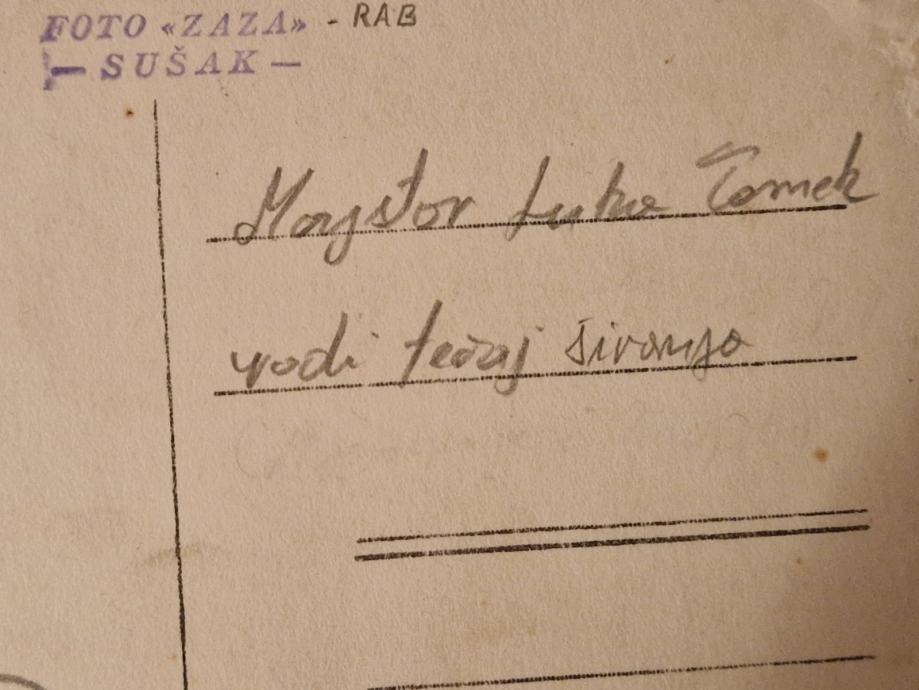 FOTO «ZAZA» - RAB
— SUŠAK —
Majstor Luka Tomek
vodi tečaj šivanja